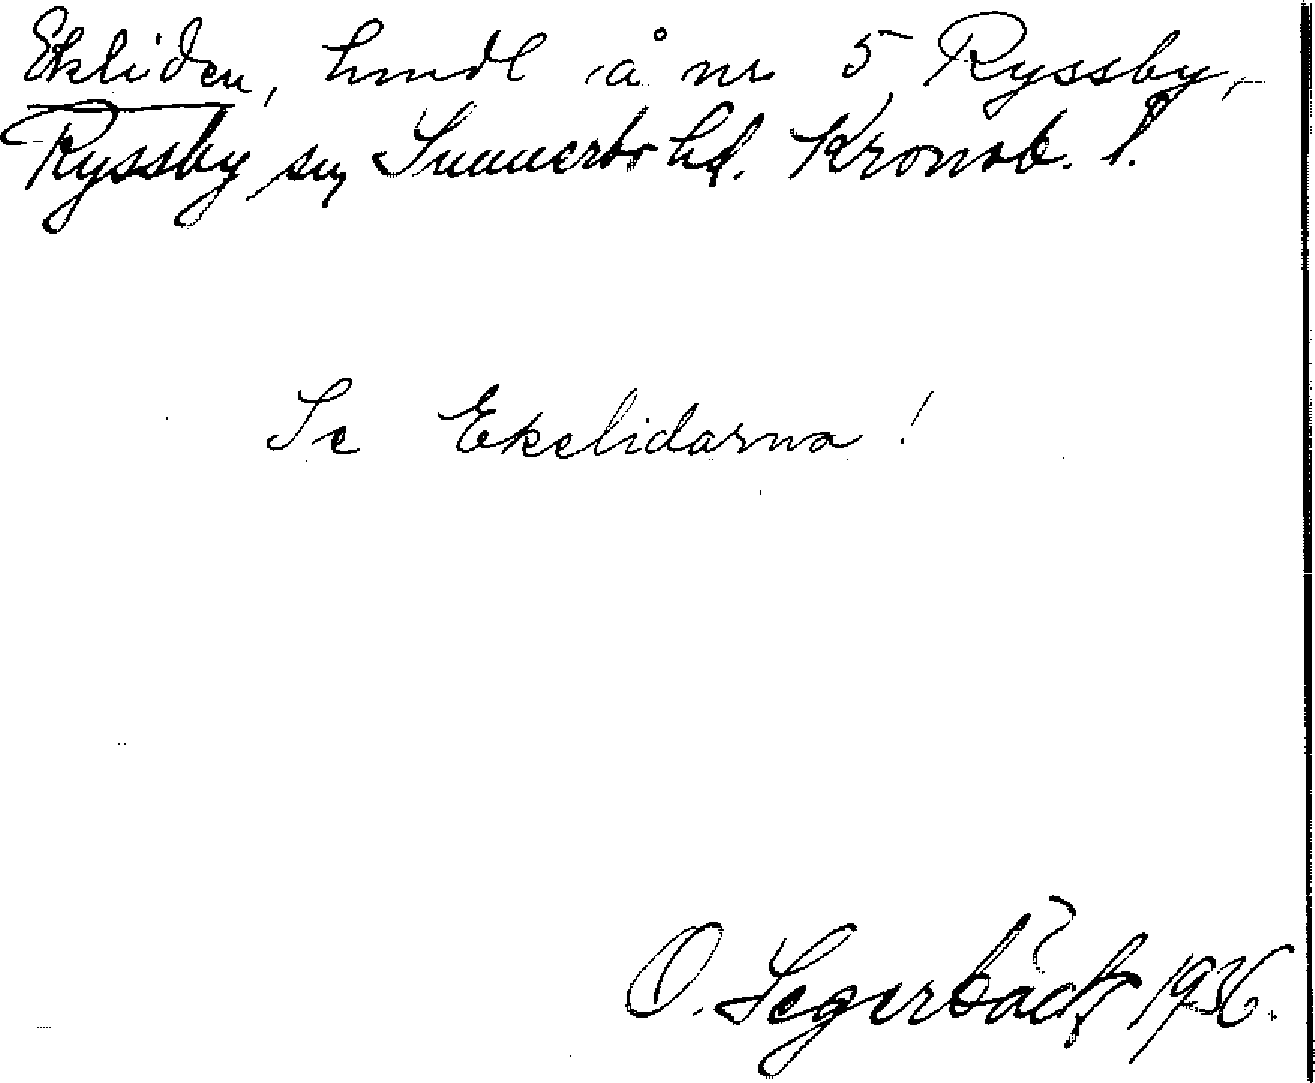 Ekliden, hmdl å nr 5 Ryssby,
Ryssby sn, Sunnerbo hd. Kronob. l.
Se Ekelidarna!
O. Segerbäck 1936.